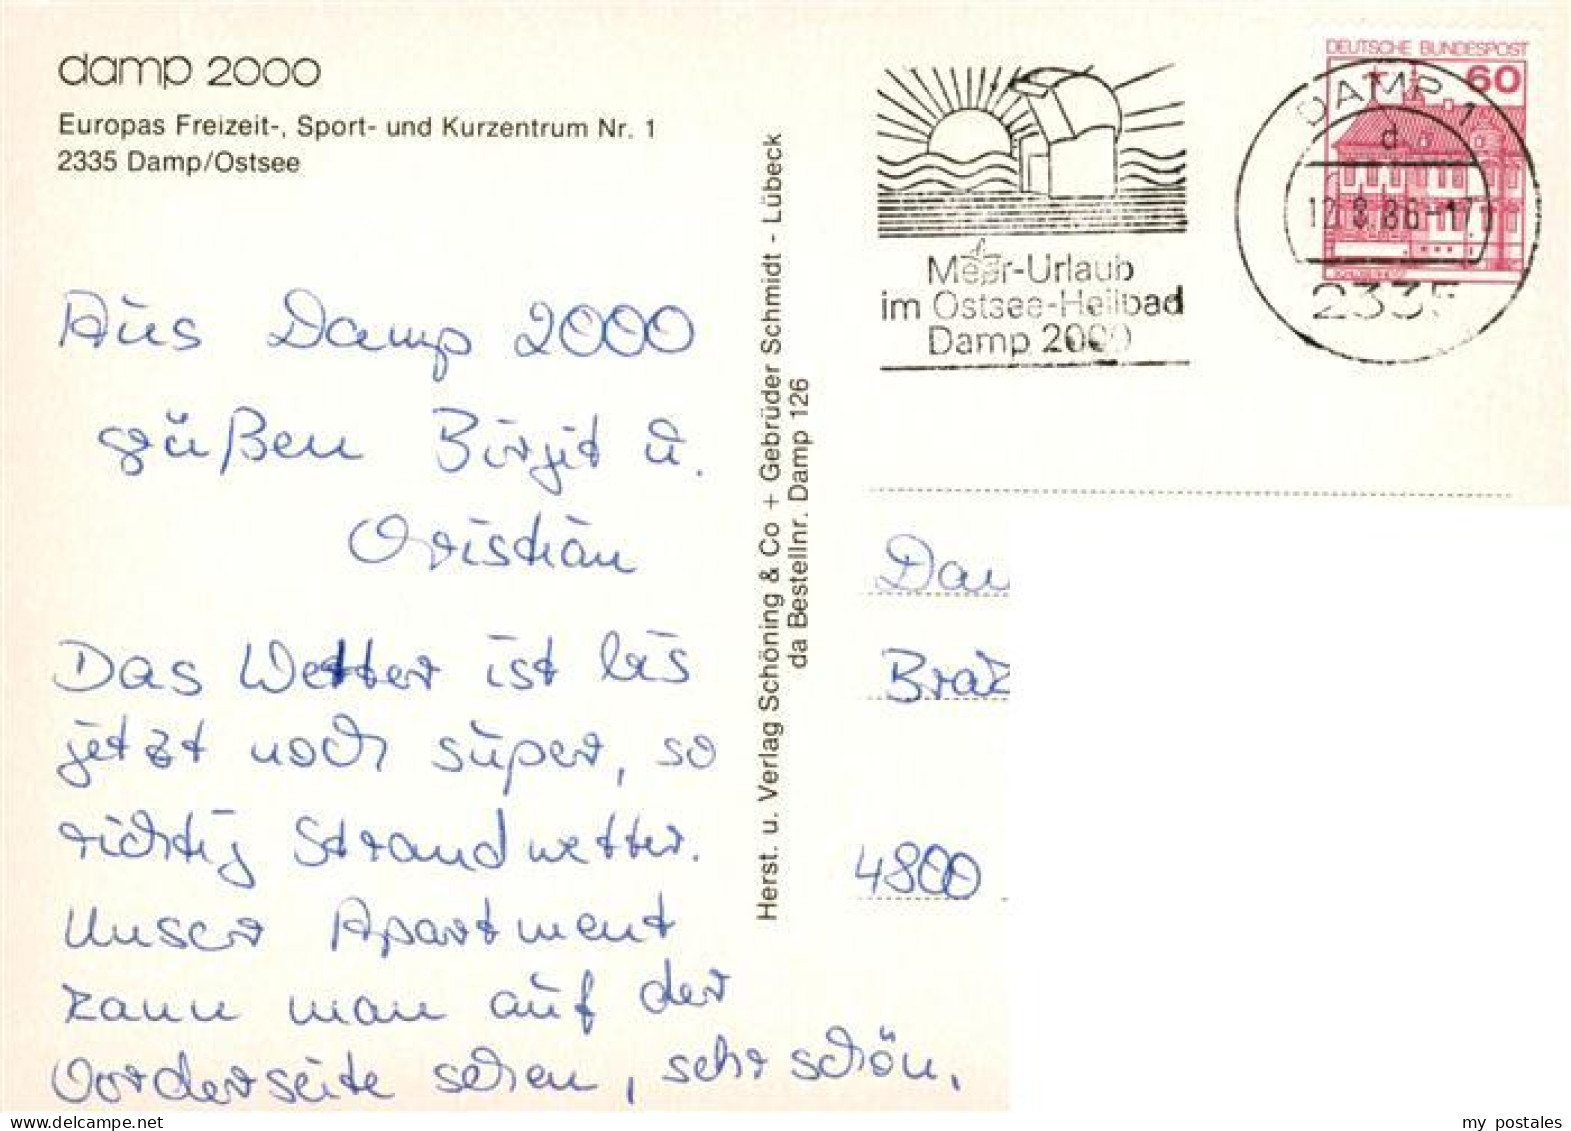 damp 2000
Europas Freizeit-, Sport- und Kurzentrum Nr. 1
2335 Damp/Ostsee
Aus Damp 2000
grüßen Birgit u.
Christian
Das Wetter ist bis
jetzt noch super, so
richtig Strandwetter.
Unser Apartment
kann man auf der
Vorderseite sehen, sehr schön.
Herst. u. Verlag Schöning & Co + Gebrüder Schmidt - Lübeck
da Bestellnr. Damp 126
Meer-Urlaub
im Ostsee-Heilbad
Damp 2000
DEUTSCHE BUNDESPOST
60
DAMP 1
d
12.8.86-17
2335
4800
my_postales